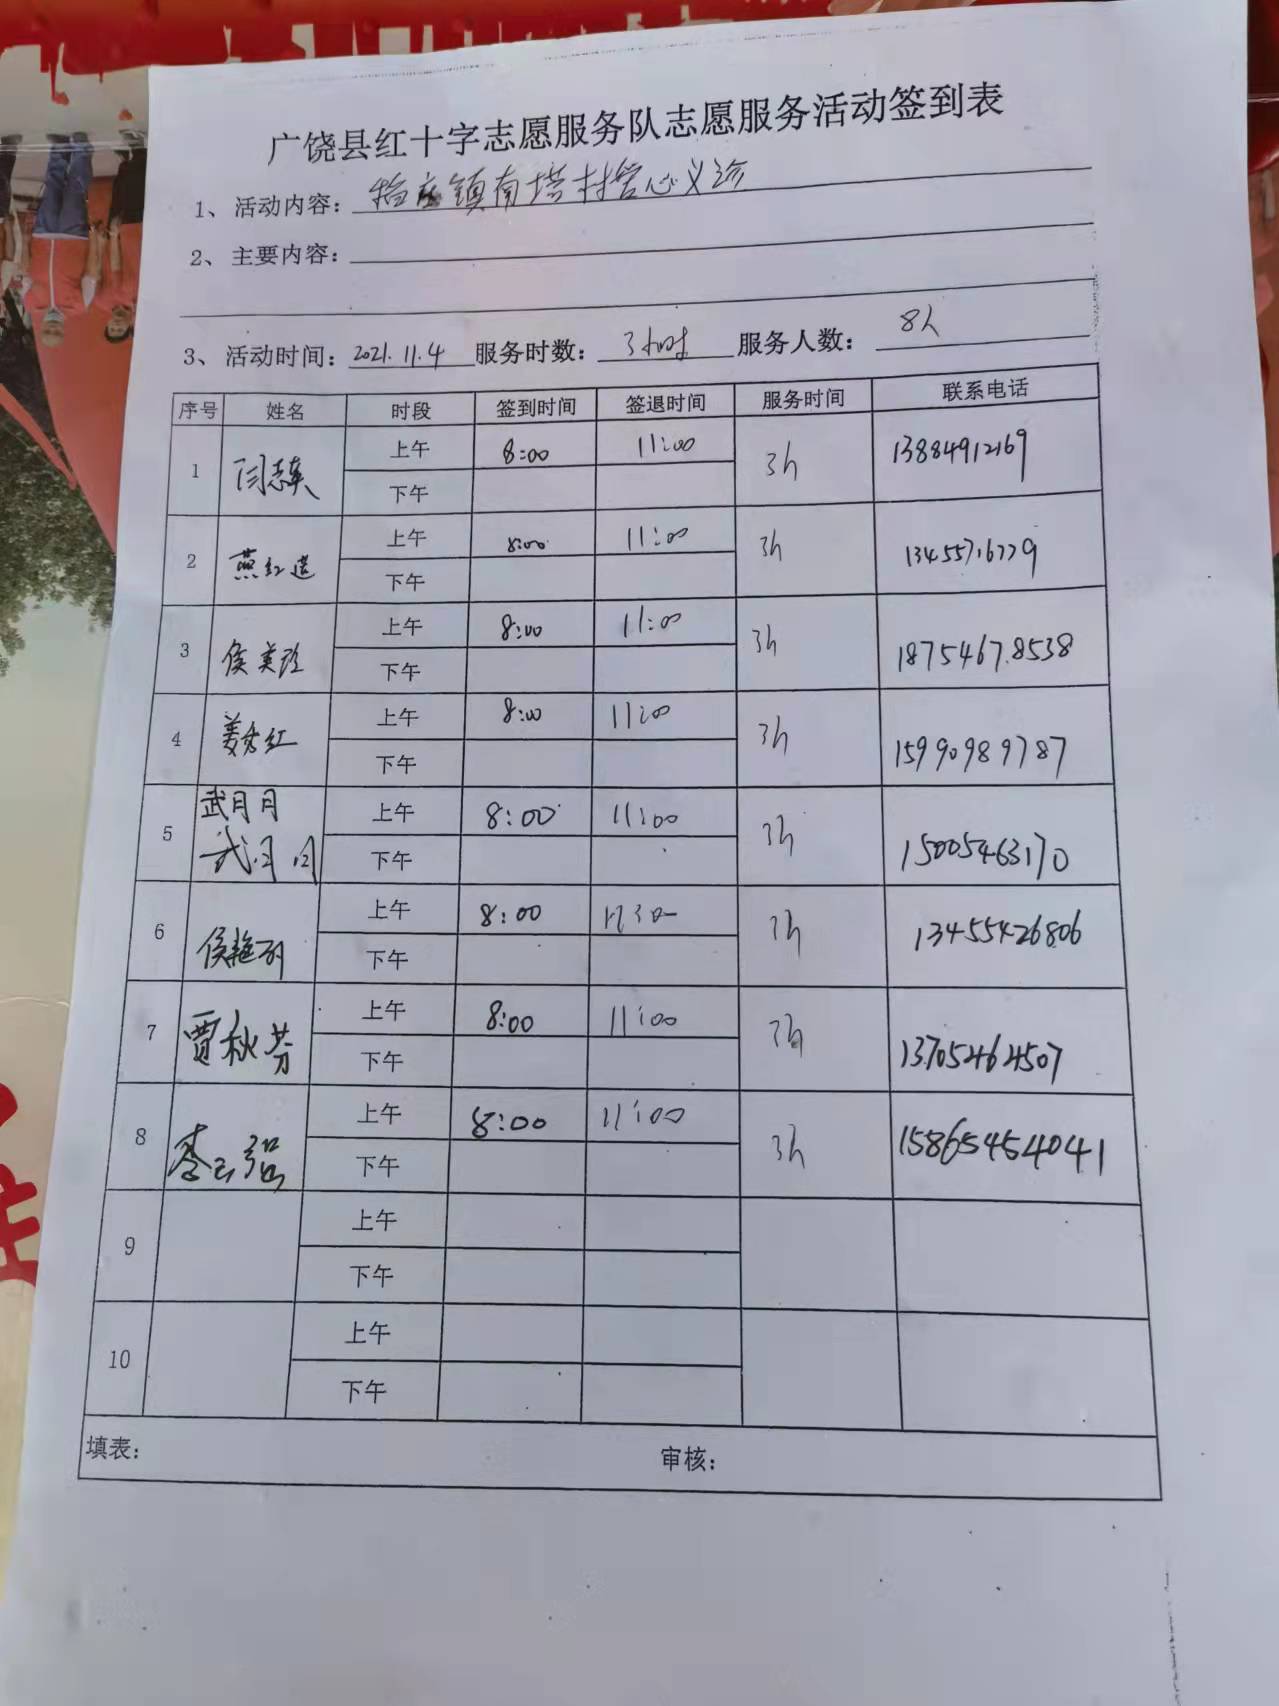 广饶县红十字志愿服务队志愿服务活动签到表
1、活动内容：镇南塔村爱心义诊
2、主要内容：
3、活动时间：2021.11.4 服务时数：3小时 服务人数：8人
序号 姓名 时段 签到时间 签退时间 服务时间 联系电话
1 闫志英 上午 8:00 11:00 3h 13884912169
下午
2 燕红莲 上午 8:00 11:00 3h 13455716779
下午
3 侯美玲 上午 8:00 11:00 3h 18754678538
下午
4 姜秀红 上午 8:00 11:00 3h 15990989787
下午
5 武月月 上午 8:00 11:00 3h 15005463170
武月月 下午
6 侯艳丽 上午 8:00 3h 13455426806
下午
7 贾秋芬 上午 8:00 11:00 3h 13705464507
下午
8 李云强 上午 8:00 11:00 3h 15865454041
下午
9 上午
下午
10 上午
下午
填表： 审核：